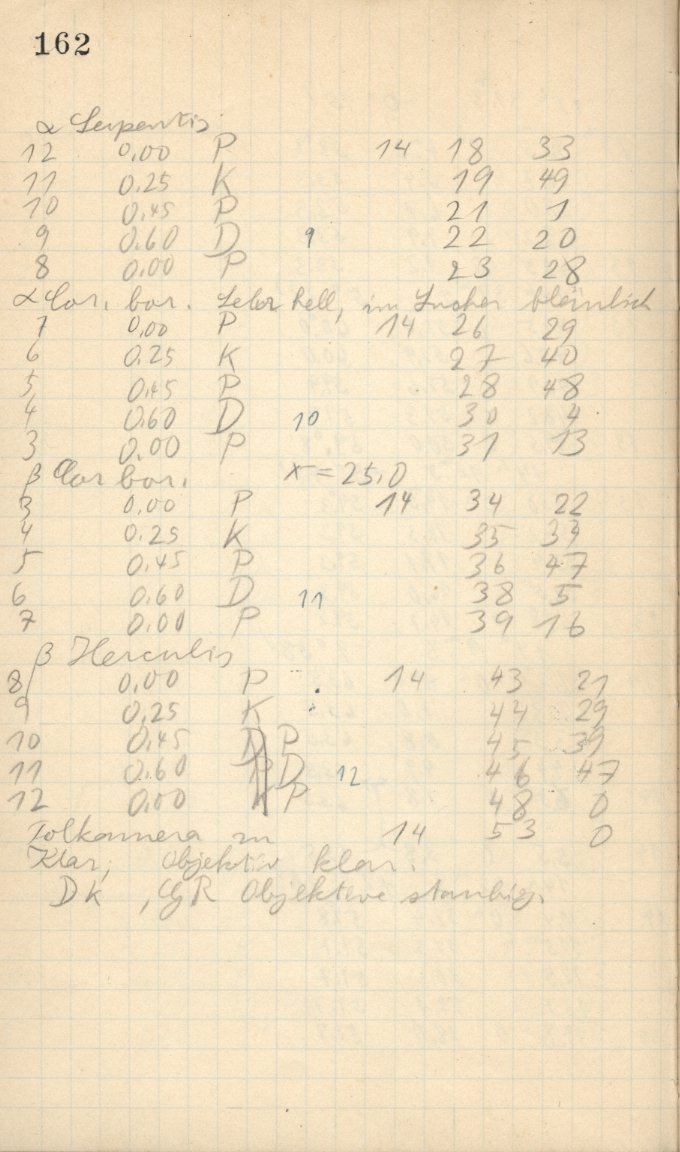 162
α Serpentis
12 0,00 P 14 18 33
11 0.25 K 19 49
10 0.45 P 21 1
9 0.60 D 9 22 20
8 0.00 P 23 28
α Cor. bor. Sehr hell, im Sucher bläulich
7 0,00 P 14 26 29
6 0.25 K 27 40
5 0.45 P 28 48
4 0.60 D 10 30 4
3 0.00 P 31 13
β Cor bor. x = 25.0
3 0.00 P 14 34 22
4 0.25 K 35 34
5 0.45 P 36 47
6 0.60 D 11 38 5
7 0.00 P 39 16
β Herculis
8 0.00 P 14 43 21
9 0.25 K 44 29
10 0.45 D P 45 39
11 0.60 P D 12 46 47
12 0.00 K P 48 0
zu 14 53 0
Klar, Objektiv klar.
DK, GR Objektive staubig.